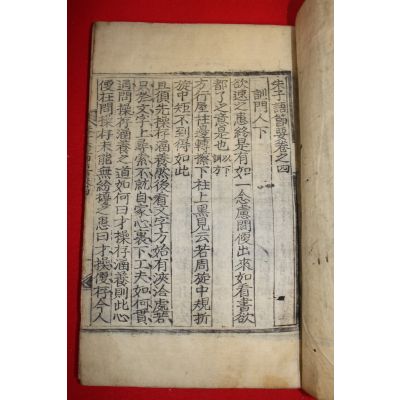 朱子語節要卷之四
訓門人下
欲速之患終是有如一念慮間便出來如看書欲
都了之意是也以下訓方
方行屋柱邊轉擦下柱上黑見云若周旋中規折
旋中矩不到得如此
且須先操存涵養然後看文字方始有浹洽處若
只於文字上尋索不就自家心裏下工夫如何貫
通問操存涵養之道如何曰才操存涵養則此心
便在問操存未能無紛擾之患曰才操便存今人